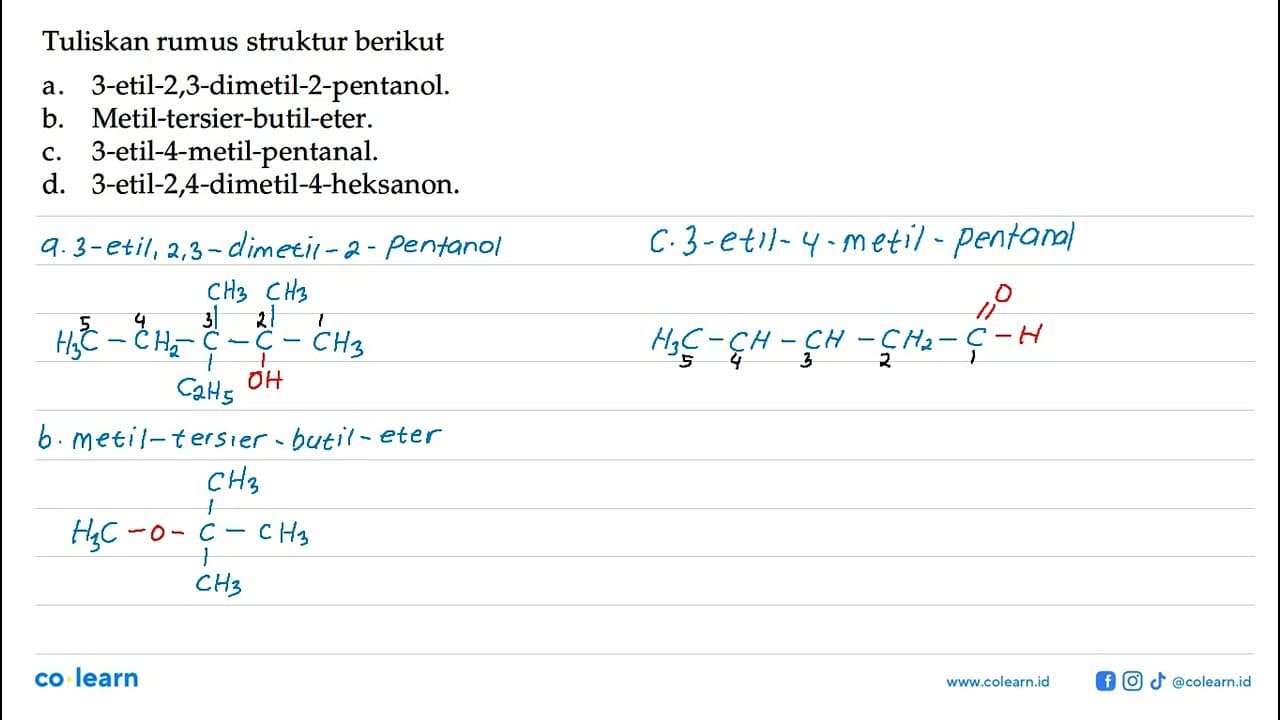 Tuliskan rumus struktur berikut
a. 3-etil-2,3-dimetil-2-pentanol.
b. Metil-tersier-butil-eter.
c. 3-etil-4-metil-pentanal.
d. 3-etil-2,4-dimetil-4-heksanon.
a. 3-etil, 2,3-dimetil-2-Pentanol
CH3 CH3
5 4 3 2 1
H3C - CH2 - C - C - CH3
C2H5 OH
b. metil-tersier-butil-eter
CH3
H3C - O - C - CH3
CH3
C. 3-etil-4-metil-pentanal
O
H3C - CH - CH - CH2 - C - H
5 4 3 2 1
co learn
www.colearn.id
@colearn.id